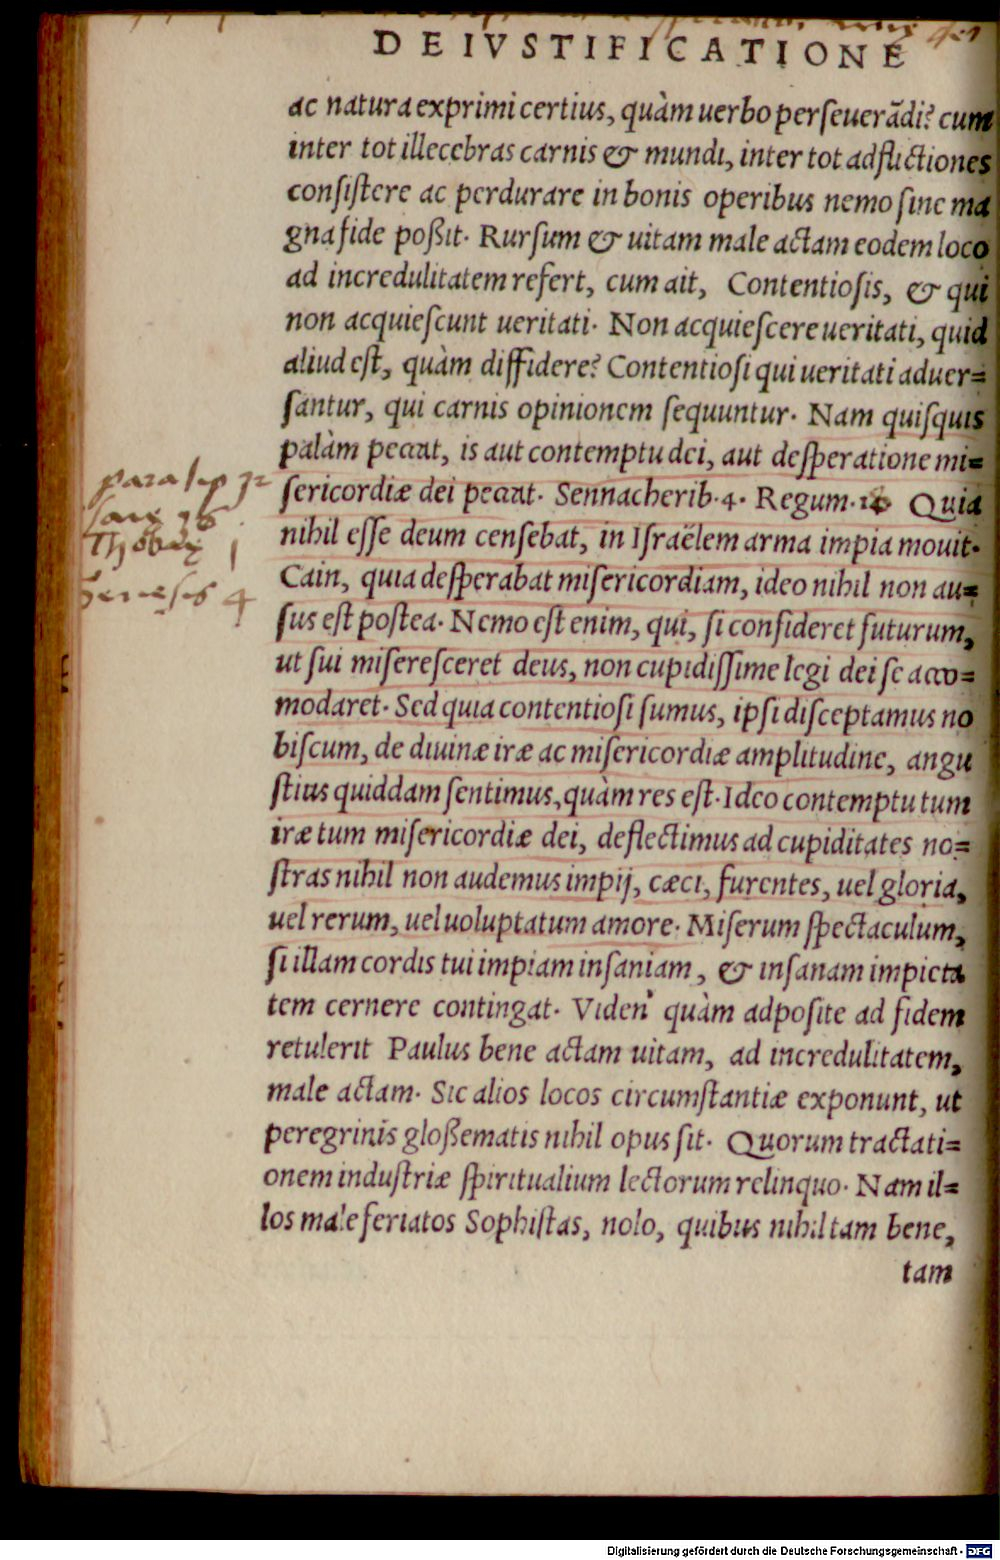 DE IVSTIFICATIONE
ac natura exprimi certius, quàm uerbo perſeuerādi? cum
inter tot illecebras carnis & mundi, inter tot adflictiones
conſiſtere ac perdurare in bonis operibus nemo ſine ma
gna fide poßit. Rurſum & uitam male actam eodem loco
ad incredulitatem refert, cum ait, Contentioſis, & qui
non acquieſcunt ueritati. Non acquieſcere ueritati, quid
aliud eſt, quàm diffidere? Contentioſi qui ueritati aduer=
ſantur, qui carnis opinionem ſequuntur. Nam quiſquis
palàm peccat, is aut contemptu dei, aut deſperatione mi=
paralip 32
ſericordiæ dei peccat. Sennacherib.4. Regum. Quia
nihil eſſe deum cenſebat, in Iſraëlem arma impia mouit.
Thobiæ 1
Cain, quia deſperabat miſericordiam, ideo nihil non au=
Geneſis 4
ſus eſt poſtea. Nemo eſt enim, qui, ſi confideret futurum,
ut ſui miſereſceret deus, non cupidiſſime legi dei ſe acco=
modaret. Sed quia contentioſi ſumus, ipſi diſceptamus no
biſcum, de diuinæ iræ ac miſericordiæ amplitudine, angu
ſtius quiddam ſentimus, quàm res eſt. Ideo contemptu tum
iræ tum miſericordiæ dei, deflectimus ad cupiditates no=
ſtras nihil non audemus impij, cæci, furentes, uel gloria,
uel rerum, uel uoluptatum amore. Miſerum ſpectaculum,
ſi illam cordis tui impiam inſaniam, & inſanam impieta
tem cernere contingat. Viden' quàm adpoſite ad fidem
retulerit Paulus bene actam uitam, ad incredulitatem,
male actam. Sic alios locos circumſtantiæ exponunt, ut
peregrinis gloßematis nihil opus ſit. Quorum tractati=
onem induſtriæ ſpiritualium lectorum relinquo. Nam il=
los male feriatos Sophiſtas, nolo, quibus nihil tam bene,
tam
Digitalisierung gefördert durch die Deutsche Forschungsgemeinschaft - DFG